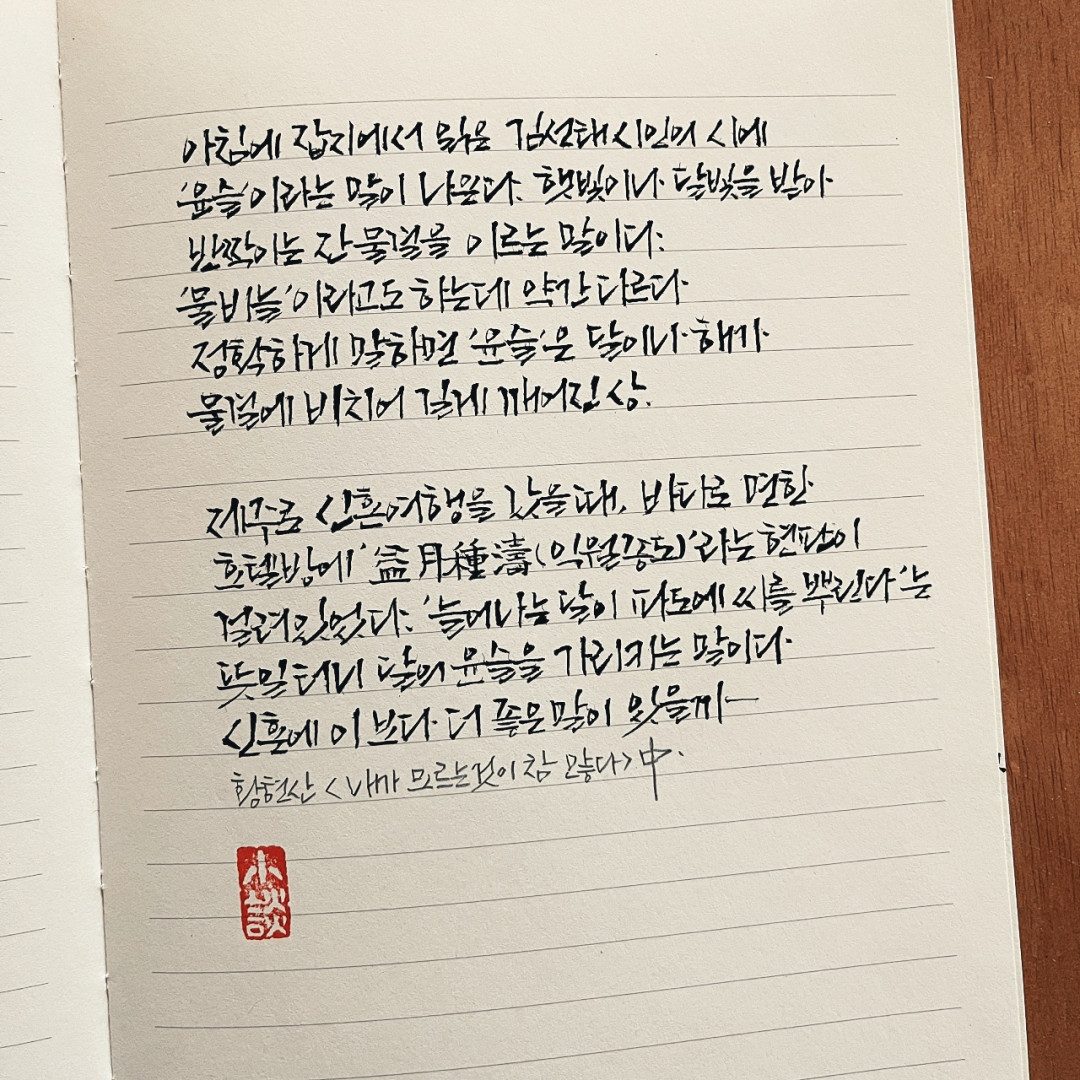 아침에 잡지에서 읽은 김선태 시인의 시에
'윤슬'이라는 말이 나온다. 햇빛이나 달빛을 받아
반짝이는 잔물결을 이르는 말이다.
'물비늘'이라고도 하는데 약간 다르다.
정확하게 말하면 '윤슬'은 달이나 해가
물결에 비치어 길게 깨어진 상.
제주로 신혼여행을 갔을 때, 바다로 면한
호텔방에 '益月種濤(익월종도)'라는 현판이
걸려있었다. '늘어나는 달이 파도에 씨를 뿌린다'는
뜻일터니 달의 윤슬을 가리키는 말이다.
신혼에 이보다 더 좋은 말이 있을까
황현산 <내가 모르는 것이 참 많다> 中.